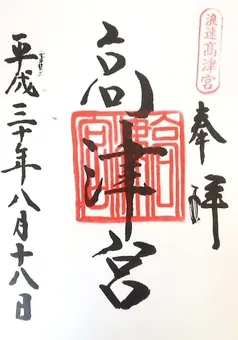 浪速高津宮
奉拝
高津宮
平成三十年八月十八日